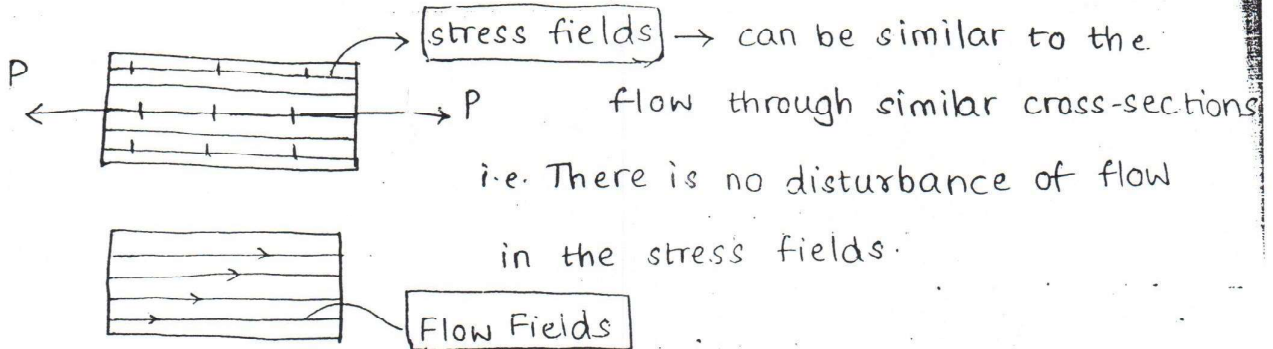 stress fields → can be similar to the
P
P
flow through similar cross-sections
i.e. There is no disturbance of flow
in the stress fields.
Flow Fields